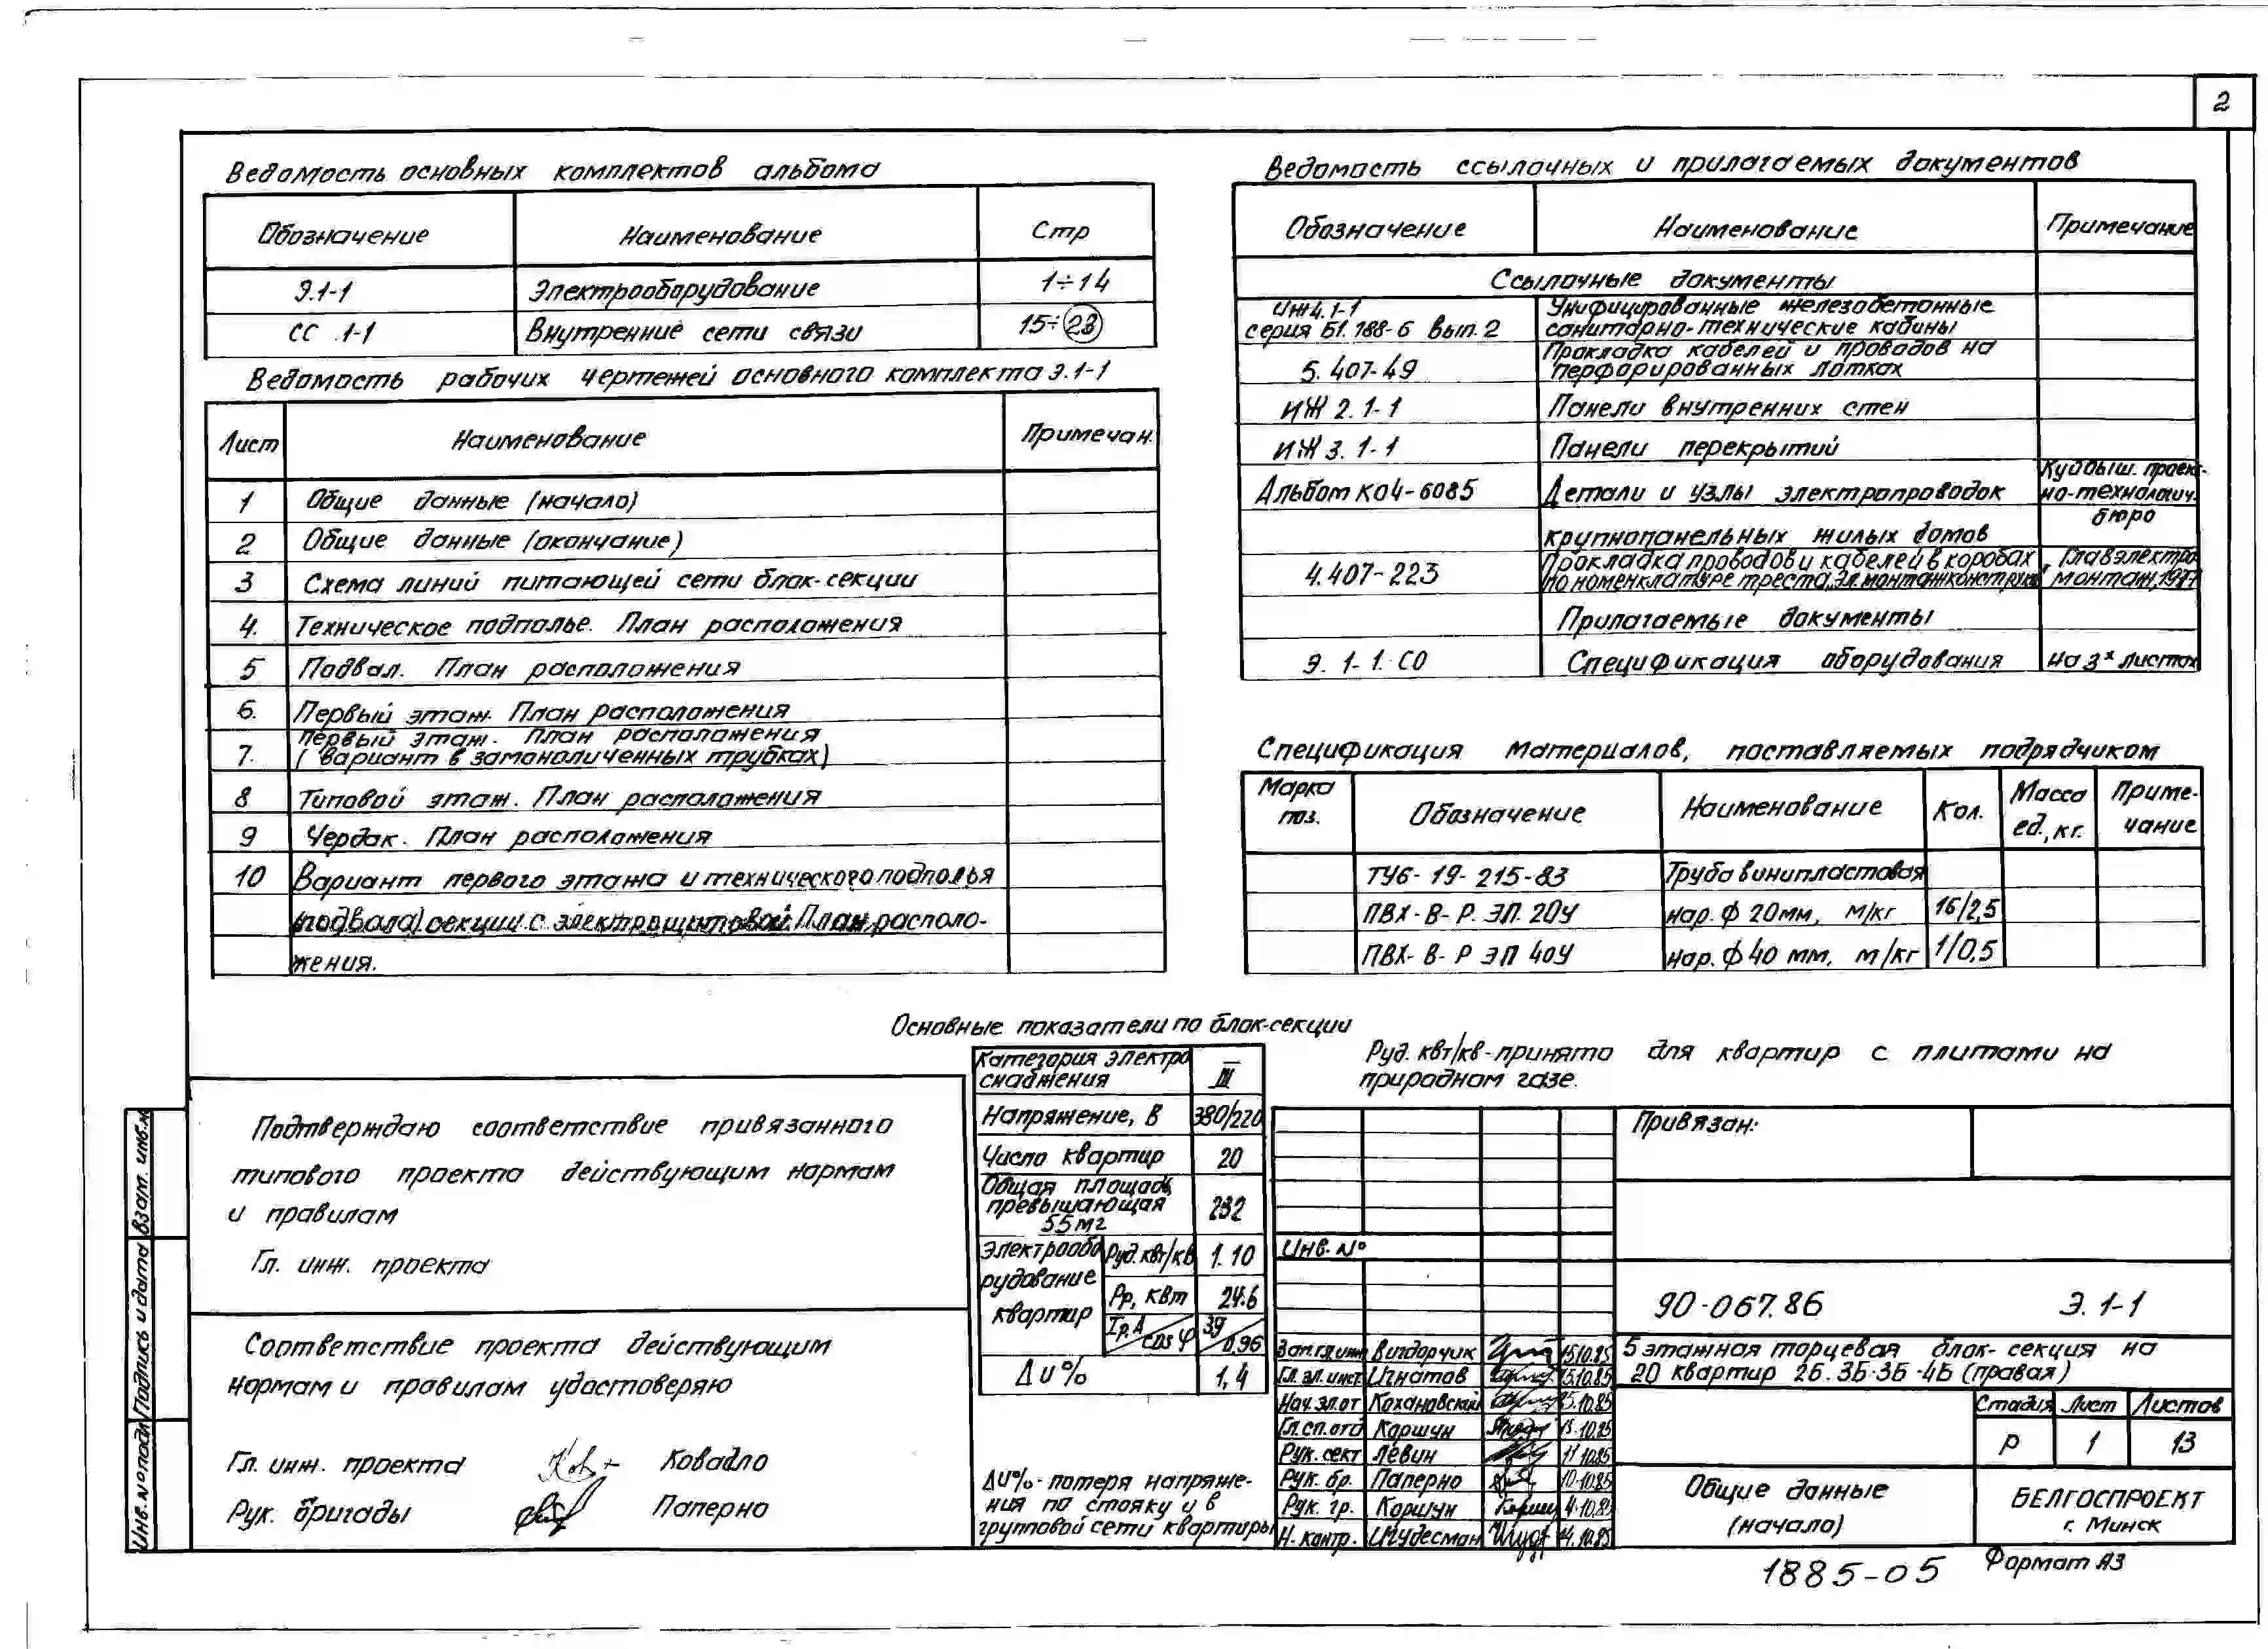 2
Ведомость основных комплектов альбома
Обозначение Наименование Стр
Э.1-1 Электрооборудование 1÷14
СС .1-1 Внутренние сети связи 15÷23
Ведомость рабочих чертежей основного комплекта Э.1-1
Лист Наименование Примечан.
1 Общие данные (начало)
2 Общие данные (окончание)
3 Схема линий питающей сети блок-секции
4. Техническое подполье. План расположения
5 Подвал. План расположения
6. Первый этаж. План расположения
7. Первый этаж. План расположения
(вариант в замоноличенных трубках)
8 Типовой этаж. План расположения
9 Чердак. План расположения
10 Вариант первого этажа и технического подполья
(подвала) секции с электрощитовой План располо-
жения.
Ведомость ссылочных и прилагаемых документов
Обозначение Наименование Примечание
Ссылочные документы
Иж4.1-1 Унифицированные железобетонные
серия Б1.188-6 вып.2 санитарно-технические кабины
5.407-49 Прокладка кабелей и проводов на
перфорированных лотках
ИЖ 2.1-1 Панели внутренних стен
ИЖ 3.1-1 Панели перекрытий
Альбом К04-6085 Детали и узлы электропроводок Куйбыш. проект-
но-технологич.
бюро
крупнопанельных жилых домов
4.407-223 Прокладка проводов и кабелей в коробах Главэлектро
по номенклатуре треста Эл.монтажконструк монтаж, 1977
Прилагаемые документы
Э. 1-1. СО Спецификация оборудования на 3х листах
Спецификация материалов, поставляемых подрядчиком
Марка поз. Обозначение Наименование Кол. Масса ед., кг. Приме-чание
ТУ6-19-215-83 Труба винипластовая
ПВХ-В-Р.ЭП.20У нар. ф 20мм, м/кг 16/2,5
ПВХ-В-Р ЭП 40У нар. ф 40 мм, м/кг 1/0,5
Основные показатели по блок-секции
Категория электро
снабжения III
Напряжение, В 380/220
Число квартир 20
Общая площадь,
превышающая 232
55м2
Электрообо
рудование
квартир
Руд.квт/кв 1.10
Рр, квт 24.6
Iр.А/cos φ 39/0,96
ΔU% 1,4
ΔU%-потеря напряже-
ния по стояку и в
групповой сети квартиры
Руд. квт/кв-принято для квартир с плитами на
природном газе.
Подтверждаю соответствие привязанного
типового проекта действующим нормам
и правилам
Гл. инж. проекта
Соответствие проекта действующим
нормам и правилам удостоверяю
Гл. инж. проекта Ковадло
Рук. бригады Паперно
Взам. инв.N
Подпись и дата
Инв.N°подл
Привязан:
Инв. N°
90-067.86 Э.1-1
Зам.гл.инж Вигдорчик 15.10.85
Гл.эл.инст. Игнатов 15.10.85
Нач.эл.от Кохановский 15.10.85
Гл.сп.отд Коршун 15.10.85
Рук.сект Левин 11 10.85
Рук. бр. Паперно 10.10.85
Рук. гр. Коршун 4.10.85
Н. контр. Шудесман 14.10.85
5 этажная торцевая блок-секция на
20 квартир 2Б.3Б-3Б-4Б (правая)
Стадия Лист Листов
Р 1 13
Общие данные
(начало)
БЕЛГОСПРОЕКТ
г. Минск
1885-05
Формат А3